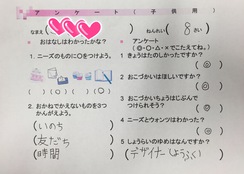 アンケート(子供用)
なまえ
ねんれい( 8さい )
★ おはなしはわかったかな?
1. ニーズのものに○をつけよう。
( )(○)( )(○)
2. おかねでかえないものを3つかんがえよう。
(いのち)
(友だち)
(時間)
★ アンケート
(◎・○・△・×でこたえてね。)
1 きょうはたのしかったですか?
(◎)
2 おこづかいはほしいですか?
(◎)
3 おこづかいちょうはじぶんでつけられそう?
(◎)
4 ニーズとウォンツはわかった?
(◎)
5 しょうらいのゆめはなんですか?
(デザイナー)